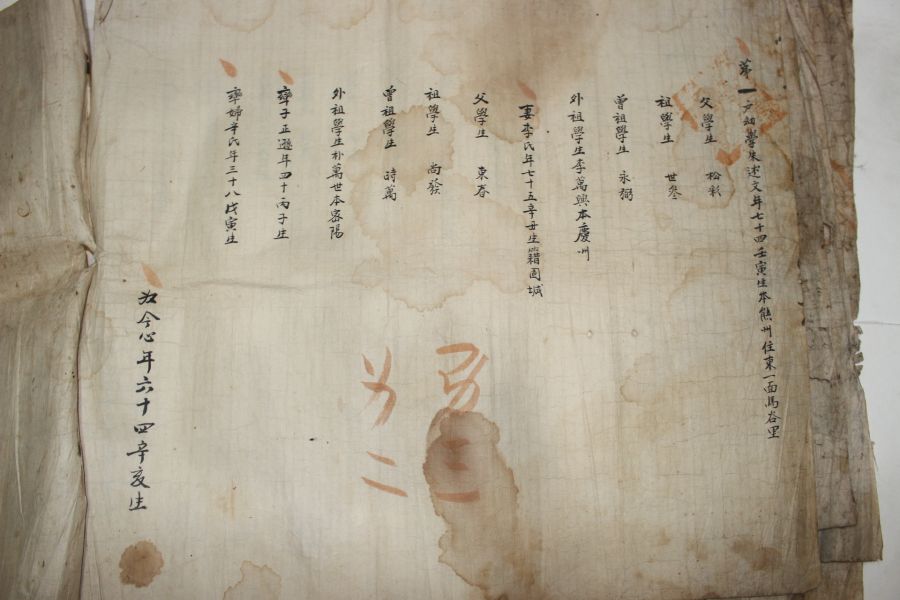 第一戶幼學朱述文年七十四壬寅生本熊州住東一面馬谷里
父學生 松彩
祖學生 世叄
曾祖學生 永弼
外祖學生李萬興本慶州
妻李氏年七十五辛丑生籍固城
父學生 東春
祖學生 尚發
曾祖學生 時萬
外祖學生朴萬世本密陽
率子正遜年四十丙子生
率婦辛氏年三十八戊寅生
今心年六十四辛亥生
男
二